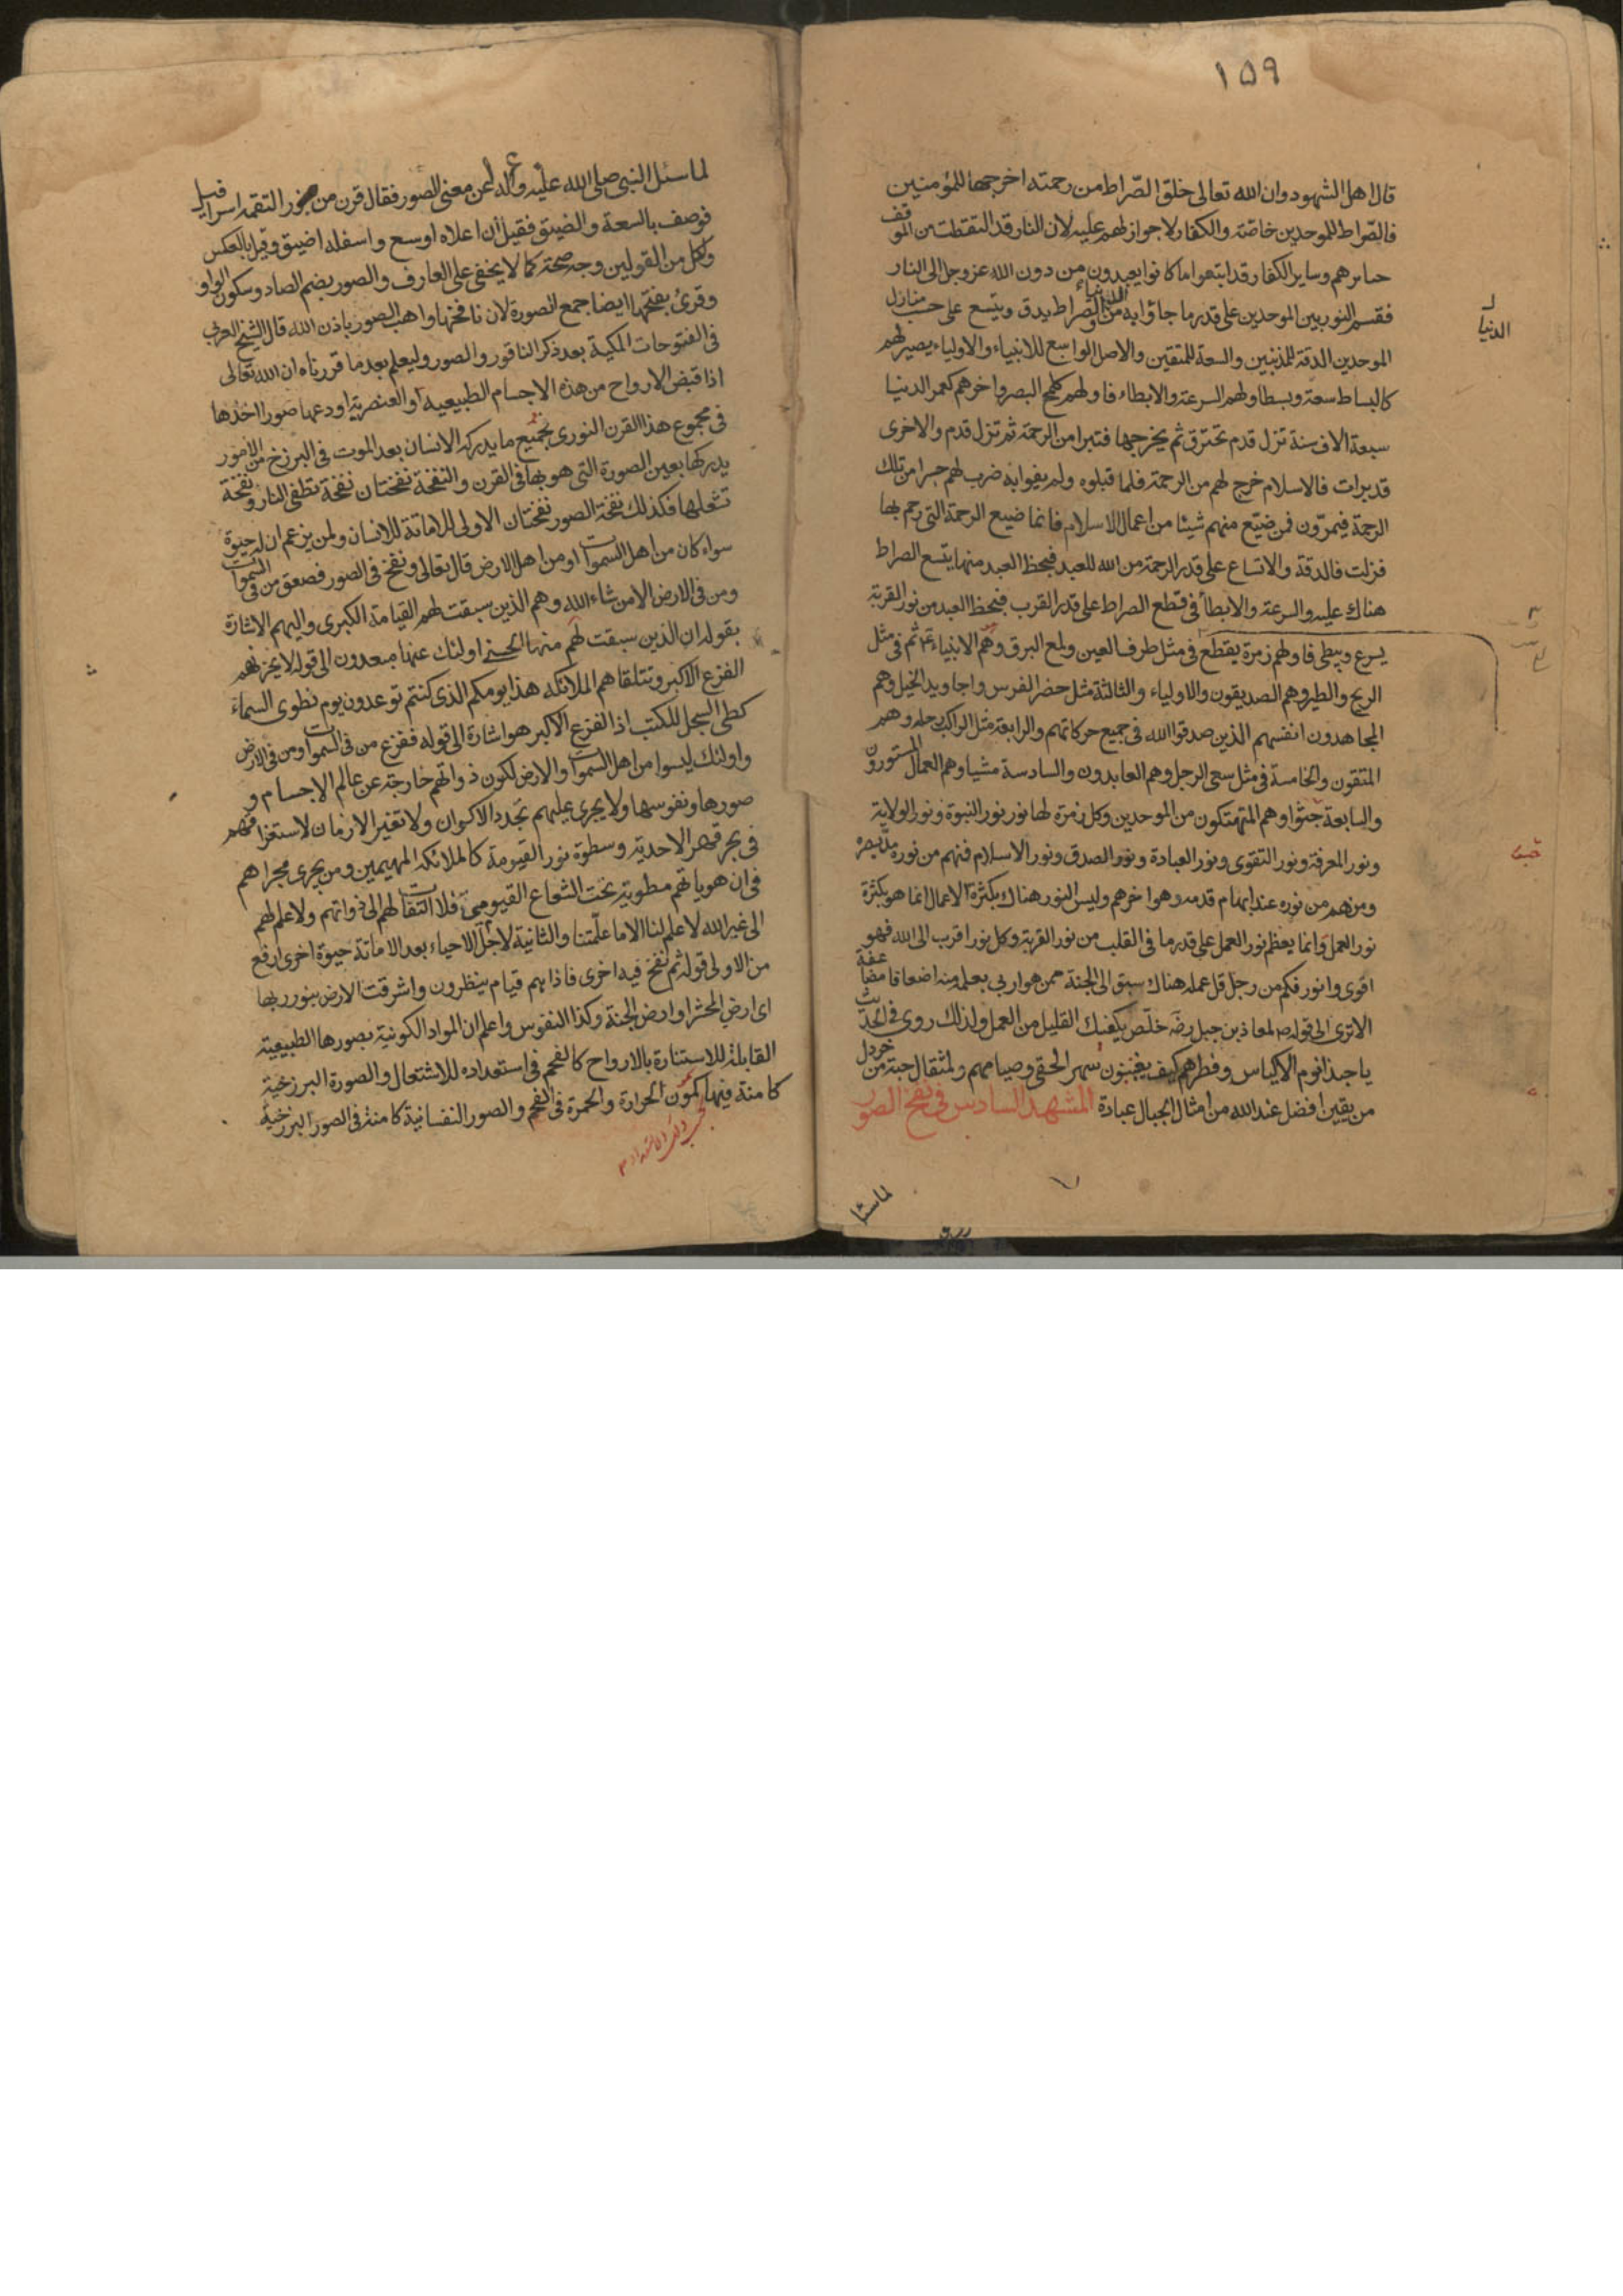 ١٥٩
قال اهل الشهود وان الله تعالى خلق الصّراط من رحمته اخرجها للمؤمنين
فالصّراط للموحدين خاصّة والكفار لا جواز لهم عليه لان النار قد التقطت من الموقف
جبابرهم وساير الكفار قد اتبعوا ما كانوا يعبدون من دون الله عز وجل الى النار
فقسم النور بين الموحدين على قدر ما جاؤا به من الدنيا والصراط يدق ويتسع على حسب منازل
الدنيا
الموحدين الدقة للمذنبين والسعة للمتقين والاصل الواسع للانبياء والاولياء يصير لهم
كالبساط سعة وبسطا ولهم السرعة والابطاء فاولهم كلمح البصر واخرهم كعمر الدنيا
سبعة الاف سنة تزل قدم تحترق ثم يخرجها فتبرا من الرحمة ثم تزل قدم والاخرى
قد برات فالاسلام خرج لهم من الرحمة فلما قبلوه ولم يفوا به ضرب لهم جسرا من تلك
الرحمة فيمرّون فمن ضيّع منهم شيئا من اعمال الاسلام فانما ضيع الرحمة التي رحم بها
فزلت فالدقة والاتساع على قدر الرحمة من الله للعبد فبحظ العبد منها يتسع الصراط
هناك عليه والسرعة والابطأ في قطع الصراط على قدر القرب فبحظ العبد من نور القربة
يسرع ويبطى فاولهم زمرة يقطع في مثل طرف العين ولمع البرق وهم الانبياء ع ثم في مثل
الريح والطير وهم الصديقون والاولياء والثالثة مثل حضر الفرس واجاويد الخيل وهم
المجاهدون انفسهم الذين صدقوا الله في جميع حركاتهم والرابعة مثل الراكب رحله وهم
المتقون والخامسة في مثل سعى الرجل وهم العابدون والسادسة مشيا وهم العمال المستورون
والسابعة جثوا وهم المتهتكون من الموحدين وكل زمرة لها نور نور النبوة ونور الولاية
ونور المعرفة ونور التقوى ونور العبادة ونور الصدق ونور الاسلام فمنهم من نوره مدّ بصره
ومنهم من نوره عند ابهام قدمه وهو اخرهم وليس النور هناك بكثرة الاعمال انما هو بكثرة
نور العمل وانما يعظم نور العمل على قدر ما في القلب من نور القربة وكل نور اقرب الى الله فهو
اقوى وانور فكم من رجل قل عمله هناك سبق الى الجنة ممن هو اربى بعمله منه اضعافا مضاعفة
الا ترى الى قوله ص لمعاذ بن جبل رضه خلّص يكفيك القليل من العمل ولذلك روى في الحديث
يا حبذا نوم الاكياس وفطرهم كيف يغبنون سهر الحمقى وصيامهم ولمثقال حبة من خردل
من يقين افضل عند الله من امثال الجبال عبادة المشهد السادس في نفخ الصور
لما سئل
لما سئل النبي صلى الله عليه وآله عن معنى الصور فقال قرن من نور التقمه اسرافيل
فوصف بالسعة والضيق فقيل ان اعلاه اوسع واسفله اضيق وقيل بالعكس
ولكل من القولين وجه صحة كما لا يخفى على العارف والصور بضم الصاد وسكون الواو
وقرئ بفتحها ايضا جمع الصورة لان نافخها واهب الصور باذن الله قال الشيخ العربي
في الفتوحات المكية بعد ذكر الناقور والصور وليعلم بعد ما قررناه ان الله تعالى
اذا قبض الارواح من هذه الاجسام الطبيعية او العنصرية اودعها صورا اخذها
في مجموع هذا القرن النورى بجميع ما يدركه الانسان بعد الموت في البرزخ من الامور
يدركها بعين الصورة التي هو بها في القرن والنفخة نفختان نفخة تطفى النار ونفخة
تشعلها فكذلك نفخة الصور نفختان الاولى للاماتة للانسان ولمن يزعم ان له حيوة
سواء كان من اهل السموات او من اهل الارض قال تعالى ونفخ في الصور فصعق من في السموات
ومن في الارض الا من شاء الله وهم الذين سبقت لهم القيامة الكبرى واليهم الاشارة
بقوله ان الذين سبقت لهم منها الحسنى اولئك عنها مبعدون الى قوله لا يحزنهم
الفزع الاكبر وتتلقاهم الملائكة هذا يومكم الذى كنتم توعدون يوم نطوى السماء
كطى السجل للكتب اذ الفزع الاكبر هو اشارة الى قوله ففزع من في السموات ومن في الارض
واولئك ليسوا من اهل السموات والارض لكون ذواتهم خارجة عن عالم الاجسام و
صورها ونفوسها ولا يجرى عليهم تجدد الاكوان ولا تغير الازمان لاستغراقهم
في بحر قهر الاحدية وسطوة نور القيومية كالملائكة المهيمين ومن يجرى مجراهم
في ان هوياتهم مطوية تحت الشعاع القيومى فلا التفات لهم الى ذواتهم ولا علم لهم
الى غير الله لا علم لنا الا ما علّمتنا والثانية لاجل الاحياء بعد الاماتة حيوة اخرى ارفع
من الاولى قوله ثم نفخ فيه اخرى فاذا هم قيام ينظرون واشرقت الارض بنور ربها
اى ارض المحشر او ارض الجنة وكذا النفوس واعلم ان المواد الكونية بصورها الطبيعية
القابلة للاستنارة بالارواح كالفحم في استعداده للاشتعال والصورة البرزخية
كامنة فيها كمون الحرارة والحمرة في الفحم والصور النفسانية كامنة في الصور البرزخية